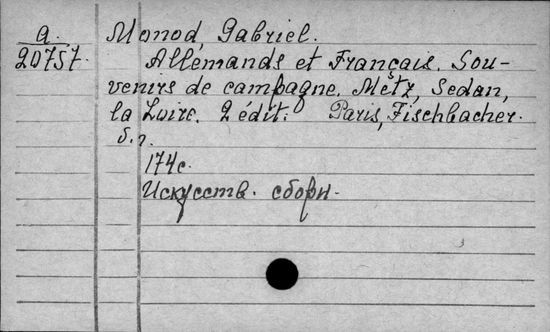 а.
20757.
Monod, Gabriel.
Allemands et Français. Sou-
venirs de campagne. Metz, Sedan,
la Loire. 2 édit. Paris, Fischbacher.
б.г.
174 с.
Искусств. сборн.